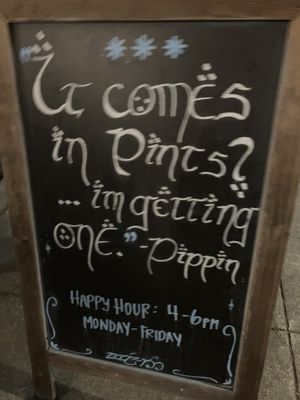 ***
"It comes
in Pints?
... im getting
one." -Pippin
HAPPY HOUR: 4-6pm
MONDAY-FRIDAY